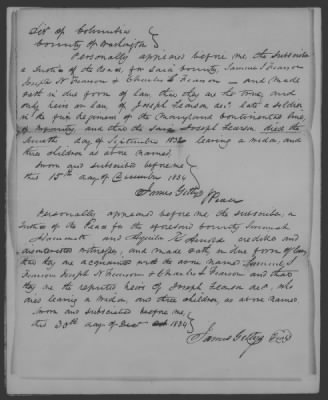 Dis. of Columbia
County of Washington
Personally appeared before me, the Subscriber
a Justice of the Peace for said County, Samuel S. Fearson
Joseph N. Fearson & Charles L. Fearson — and made
oath in due form of law, that they are the true, and
only heirs in law of Joseph Fearson decd. late a soldier
in the first Regiment of the Maryland Continental line,
of Infantry, and that the said Joseph Fearson, died the
day of September leaving a widow, and
three children as above named.
Sworn and subscribed before me
this 15th day of December 1834
James Gettys
J Peace
Personally appeared before me the subscriber, a
Justice of the Peace for the aforesaid County
and credible and
disinterested witnesses, and made oath in due form of law,
that they are acquainted with the above named Samuel S
Fearson Joseph N Fearson & Charles L Fearson and that
they are the reputed heirs of Joseph Fearson decd, who
died leaving a widow, and three children, as above named.
Sworn and subscribed before me,
this 30th day of 1834
James Gettys